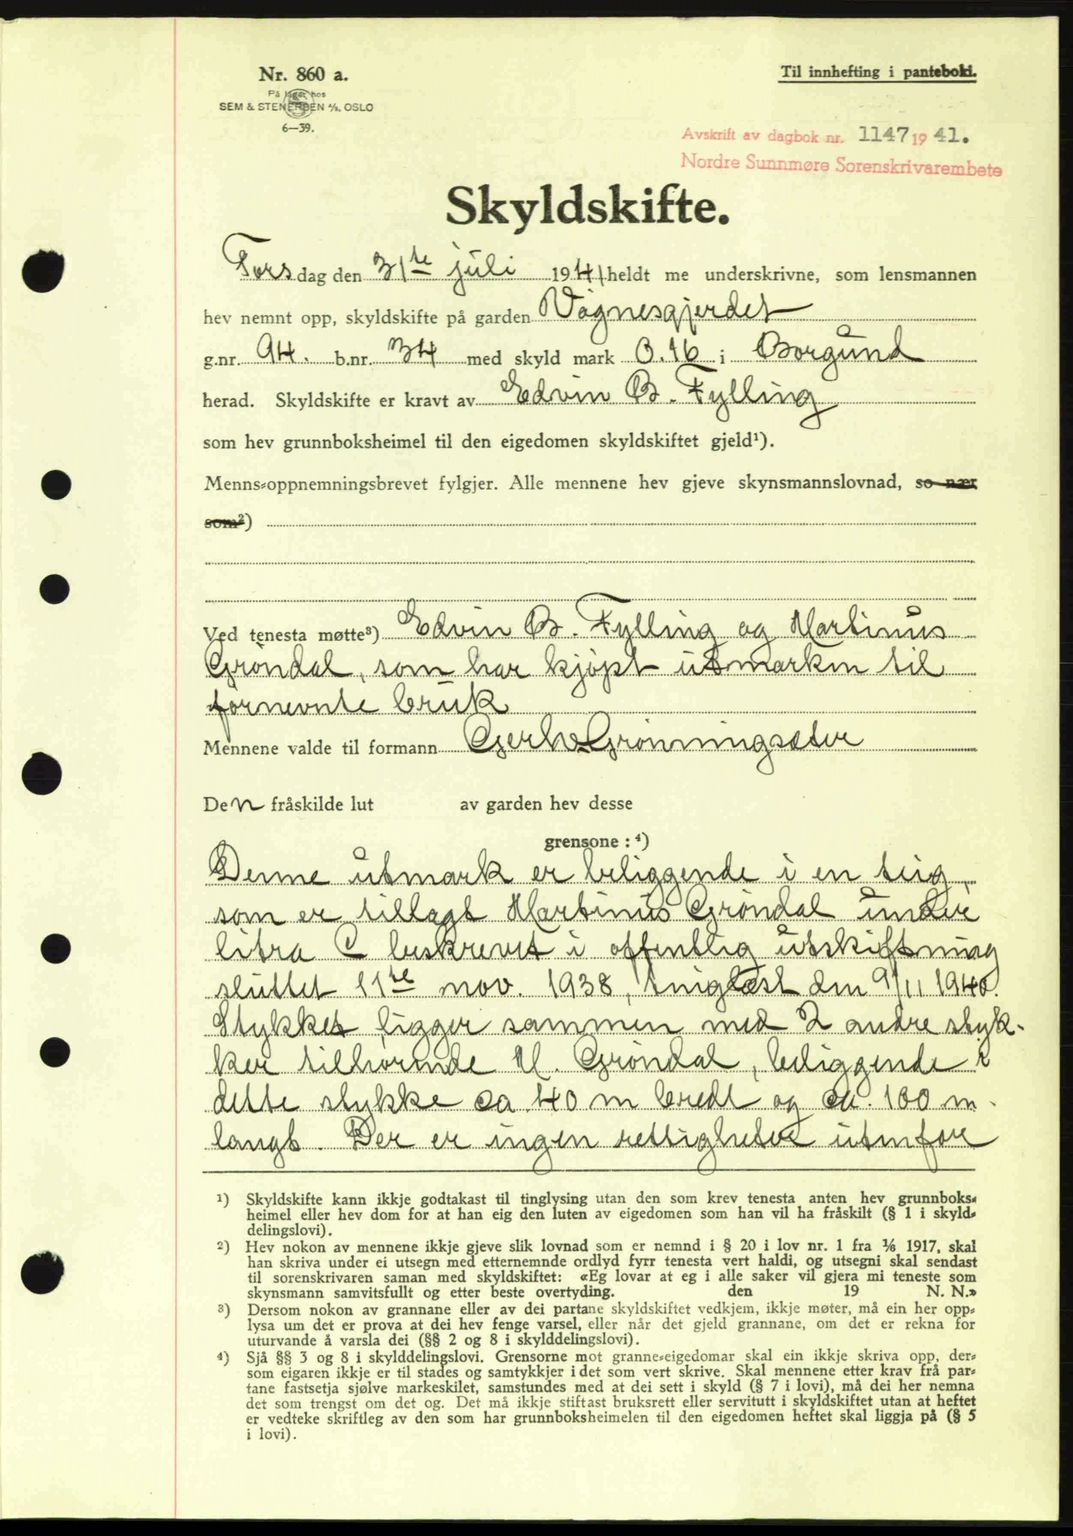 Nr. 860 a.
På lager hos
SEM & STENERSEN A/S. OSLO
6—39.
Til innhefting i pantebok.
Avskrift av dagbok nr. 1147 19 41.
Nordre Sunnmøre Sorenskrivarembete
Skyldskifte.
Torsdag den 31te juli 1941 heldt me underskrivne, som lensmannen
hev nemnt opp, skyldskifte på garden Vågnesgjerdet
g.nr. 94. b.nr. 34 med skyld mark 0.16 i Borgund
herad. Skyldskifte er kravt av Edvin B. Fylling
som hev grunnboksheimel til den eigedomen skyldskiftet gjeld¹).
Menns-oppnemningsbrevet fylgjer. Alle mennene hev gjeve skynsmannslovnad, so nær
som²)
Ved tenesta møtte³) Edvin B. Fylling og Martinus
Grøndal, som har kjøpt utmarken til
førnevnte bruk
Mennene valde til formann Gerh. Grønningsæter
Den fråskilde lut av garden hev desse
grensone : ⁴)
Denne utmark er beliggende i en teig
som er tillagt Martinus Grøndal under
litra C beskrevet i offentlig utskiftning
sluttet 11te nov. 1938, tinglest den 9/11 1940.
Stykket ligger sammen med 2 andre styk-
ker tilhørende M. Grøndal, beliggende i
dette stykke ca 40 m bredt og ca. 100 m
langt. Der er ingen rettigheter utenfore
¹) Skyldskifte kann ikkje godtakast til tinglysing utan den som krev tenesta anten hev grunnboks-
heimel eller hev dom for at han eig den luten av eigedomen som han vil ha fråskilt (§ 1 i skyld-
delingslovi).
²) Hev nokon av mennene ikkje gjeve slik lovnad som er nemnd i § 20 i lov nr. 1 fra 1/6 1917, skal
han skriva under ei utsegn med etternemnde ordlyd fyrr tenesta vert haldi, og utsegni skal sendast
til sorenskrivaren saman med skyldskiftet: «Eg lovar at eg i alle saker vil gjera mi teneste som
skynsmann samvitsfullt og etter beste overtyding. den 19 N. N.»
³) Dersom nokon av grannane eller av dei partane skyldskiftet vedkjem, ikkje møter, må ein her opp-
lysa um det er prova at dei hev fenge varsel, eller når det gjeld grannane, om det er rekna for
uturvande å varsla dei (§§ 2 og 8 i skylddelingslovi).
⁴) Sjå §§ 3 og 8 i skylddelingslovi. Grensorne mot granne-eigedomar skal ein ikkje skriva opp, der-
som eigaren ikkje er til stades og samtykkjer i det som vert skrive. Skal mennene etter krav frå par-
tane fastsetja sjølve markeskilet, samstundes med at dei sett i skyld (§ 7 i lovi), må dei her nemna
det som trengst om det og. Det må ikkje stiftast bruksrett eller servitutt i skyldskiftet utan at heftet
er vedteke skriftleg av den som har grunnboksheimelen til den eigedomen heftet skal liggja på (§ 5
i lovi).